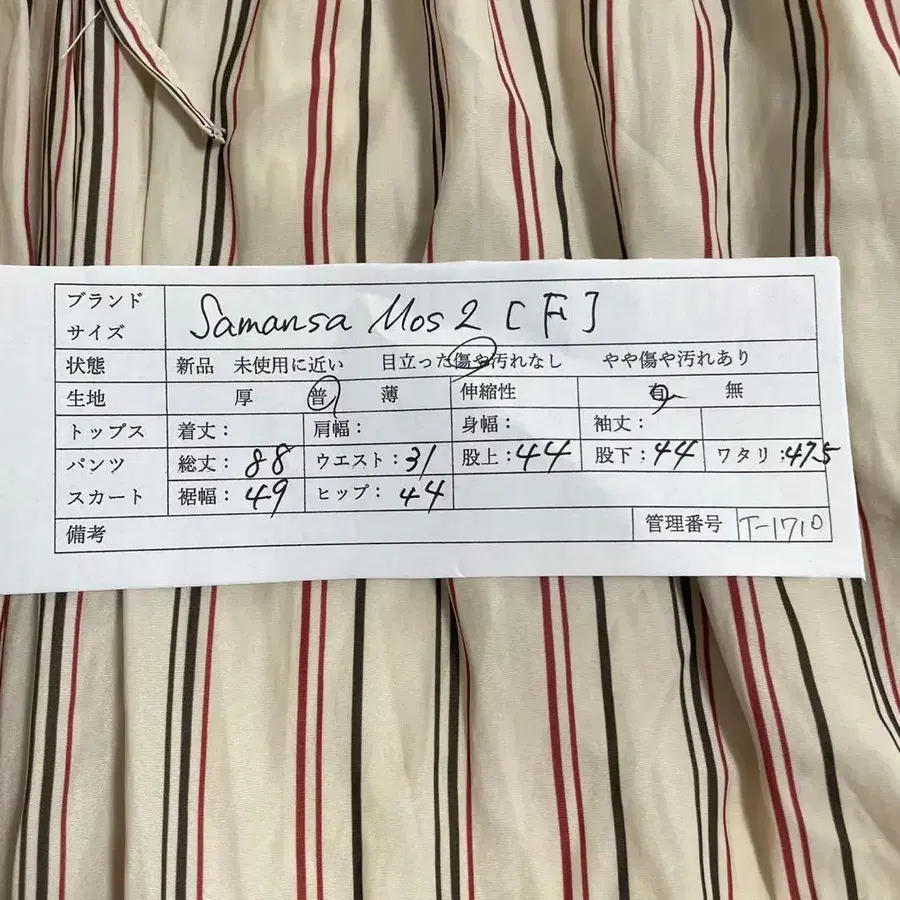 ブランド
サイズ
Samansa Mos2 [F]
状態 新品 未使用に近い 目立った傷や汚れなし やや傷や汚れあり
生地 厚 普 薄 伸縮性 有 無
トップス 着丈: 肩幅: 身幅: 袖丈:
パンツ 総丈: 88 ウエスト: 31 股上: 44 股下: 44 ワタリ: 47.5
スカート 裾幅: 49 ヒップ: 44
備考 管理番号 T-1710